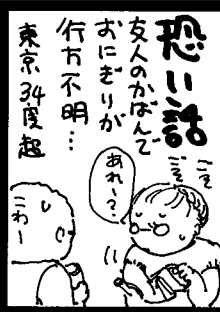 恐い話
友人のかばんで
おにぎりが
行方不明…
東京34度超
ごそごそ
あれ～?
こわー